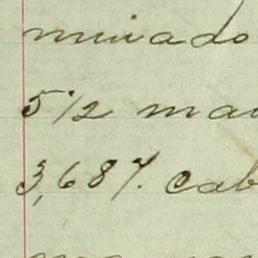 minado
5 1/2 ma
3,687. cab